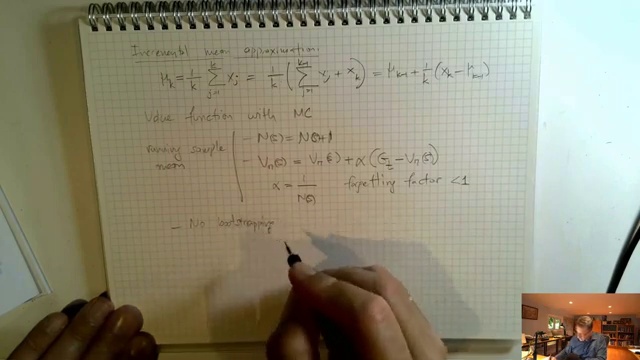 Incremental mean approximation:
μ_k = 1/k Σ_{j=1}^{k} x_j = 1/k ( Σ_{j=1}^{k-1} x_j + x_k ) = μ_{k-1} + 1/k ( x_k - μ_{k-1} )
Value function with MC
running sample mean
- N(s) = N(s)+1
- V_π(s) = V_π(s) + α ( G_t - V_π(s) )
α = 1/N(s) forgetting factor < 1
- No bootstrapping